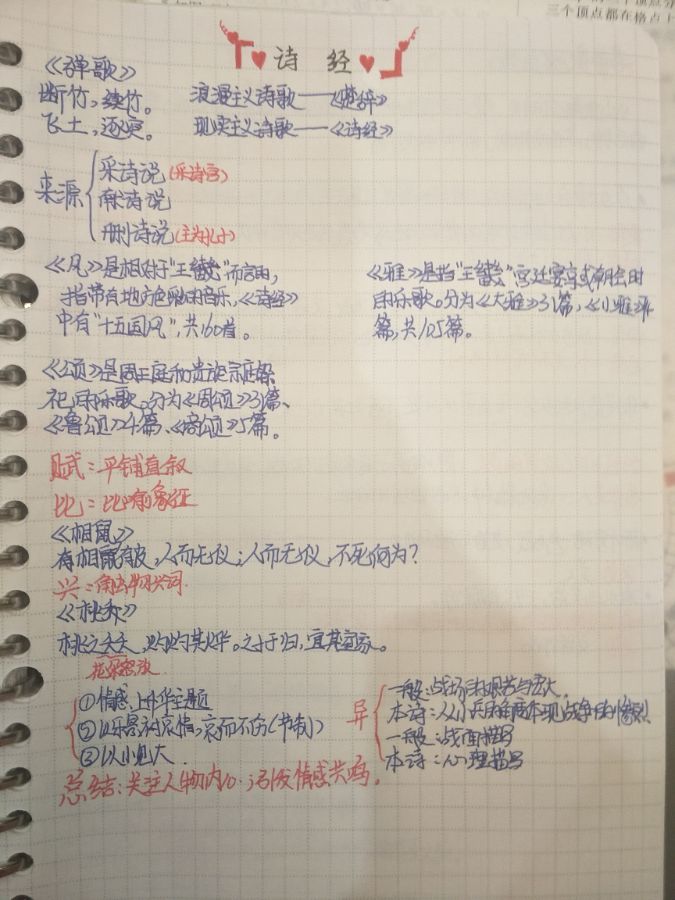 三个顶点都在格点上
诗 经
《弹歌》
断竹，续竹。
飞土，逐宍。
浪漫主义诗歌——《楚辞》
现实主义诗歌——《诗经》
来源
采诗说（采诗官）
献诗说
删诗说（主为孔子）
《风》是相对于“王畿”而言的，
指带有地方色彩的音乐，《诗经》
中有“十五国风”，共160首。
《雅》是指“王畿”宫廷宴享或朝会时
的乐歌。分为《大雅》31篇，《小雅》
篇，共105篇。
《颂》是周王庭和贵族宗庙祭
祀的乐歌。分为《周颂》31篇、
《鲁颂》4篇、《商颂》5篇。
赋：平铺直叙
比：比喻象征
《相鼠》
有皮，人而无仪；人而无仪，不死何为？
兴：
《桃夭》
桃之夭夭，灼灼其华。之子于归，宜其室家。
花朵怒放
①情感上升华主题
②以乐景衬哀情，哀而不伤（节制）
③以小见大.
异
一般：战场的艰苦与宏大.
本诗：人小兵的角度体现战争的惨烈
一般：战面描写
本诗：心理描写
总结：关注人物内心.引发情感共鸣.